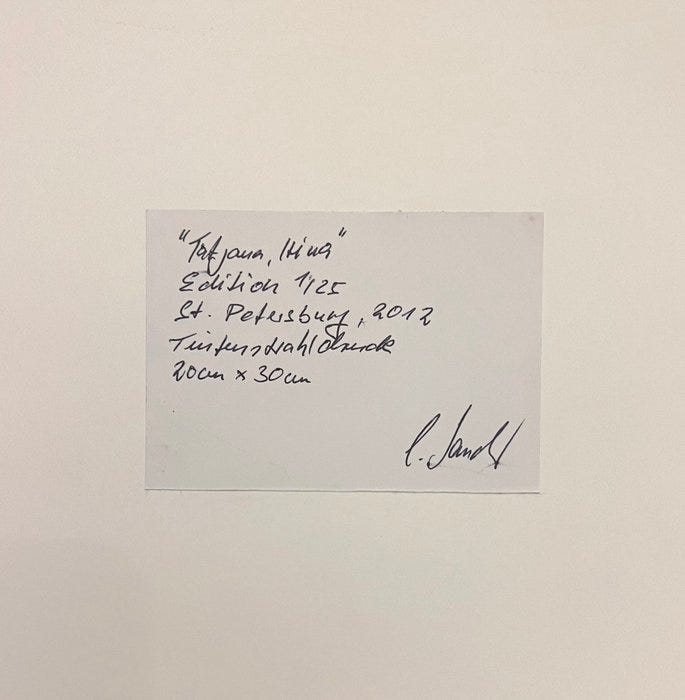 "Tatjana, Irina"
Edition 1/25
St. Petersburg, 2012
Tintenstrahldruck
20cm x 30cm